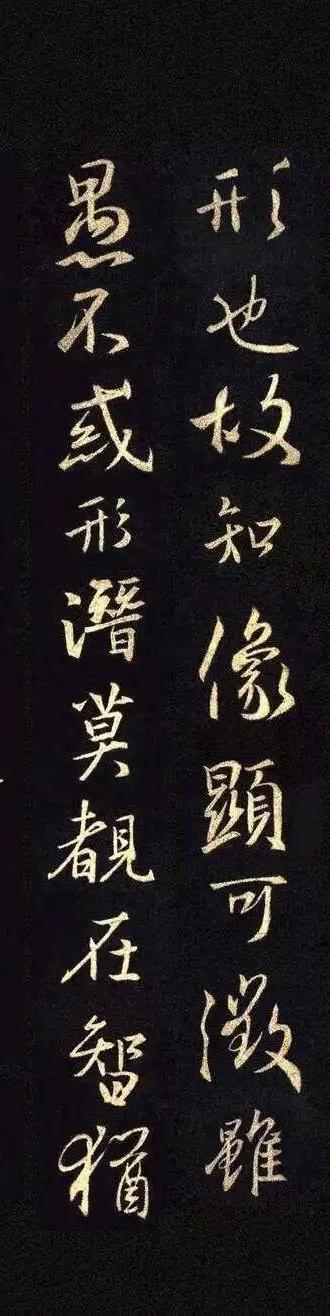 形也故知像顯可徵雖
愚不惑形潛莫覩在智猶